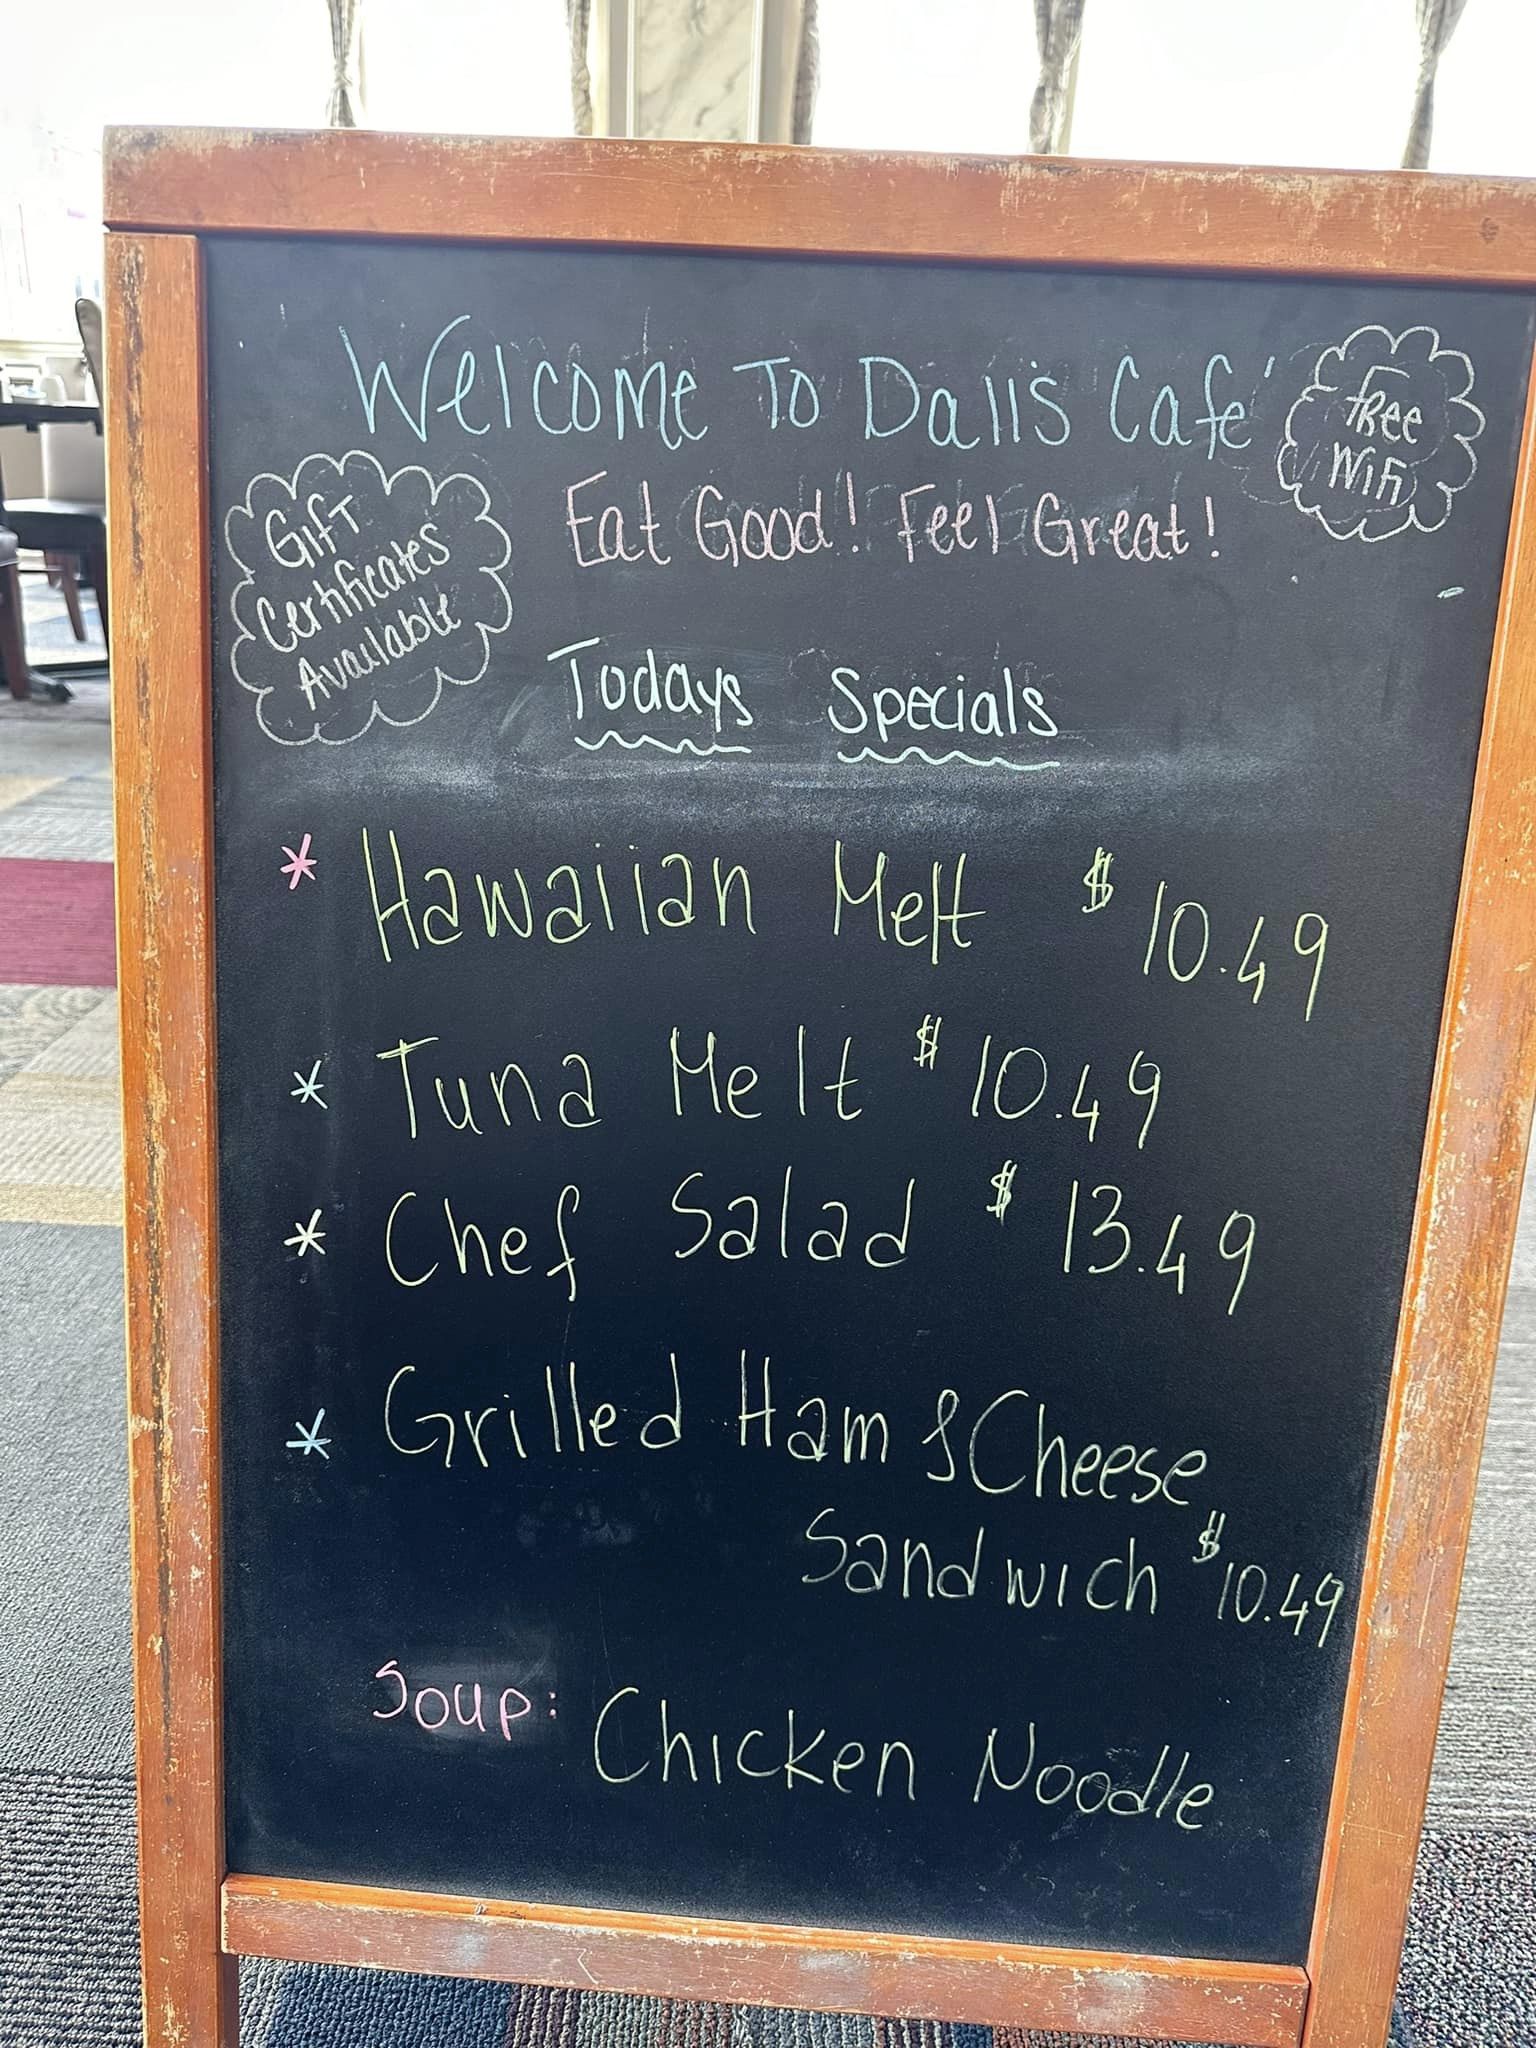 Welcome To Dall's Cafe'
Free
WiFi
Eat Good! Feel Great!
Gift
Certificates
Available
Todays Specials
* Hawaiian Melt $10.49
* Tuna Melt $10.49
* Chef Salad $13.49
* Grilled Ham & Cheese
Sandwich $10.49
Soup: Chicken Noodle